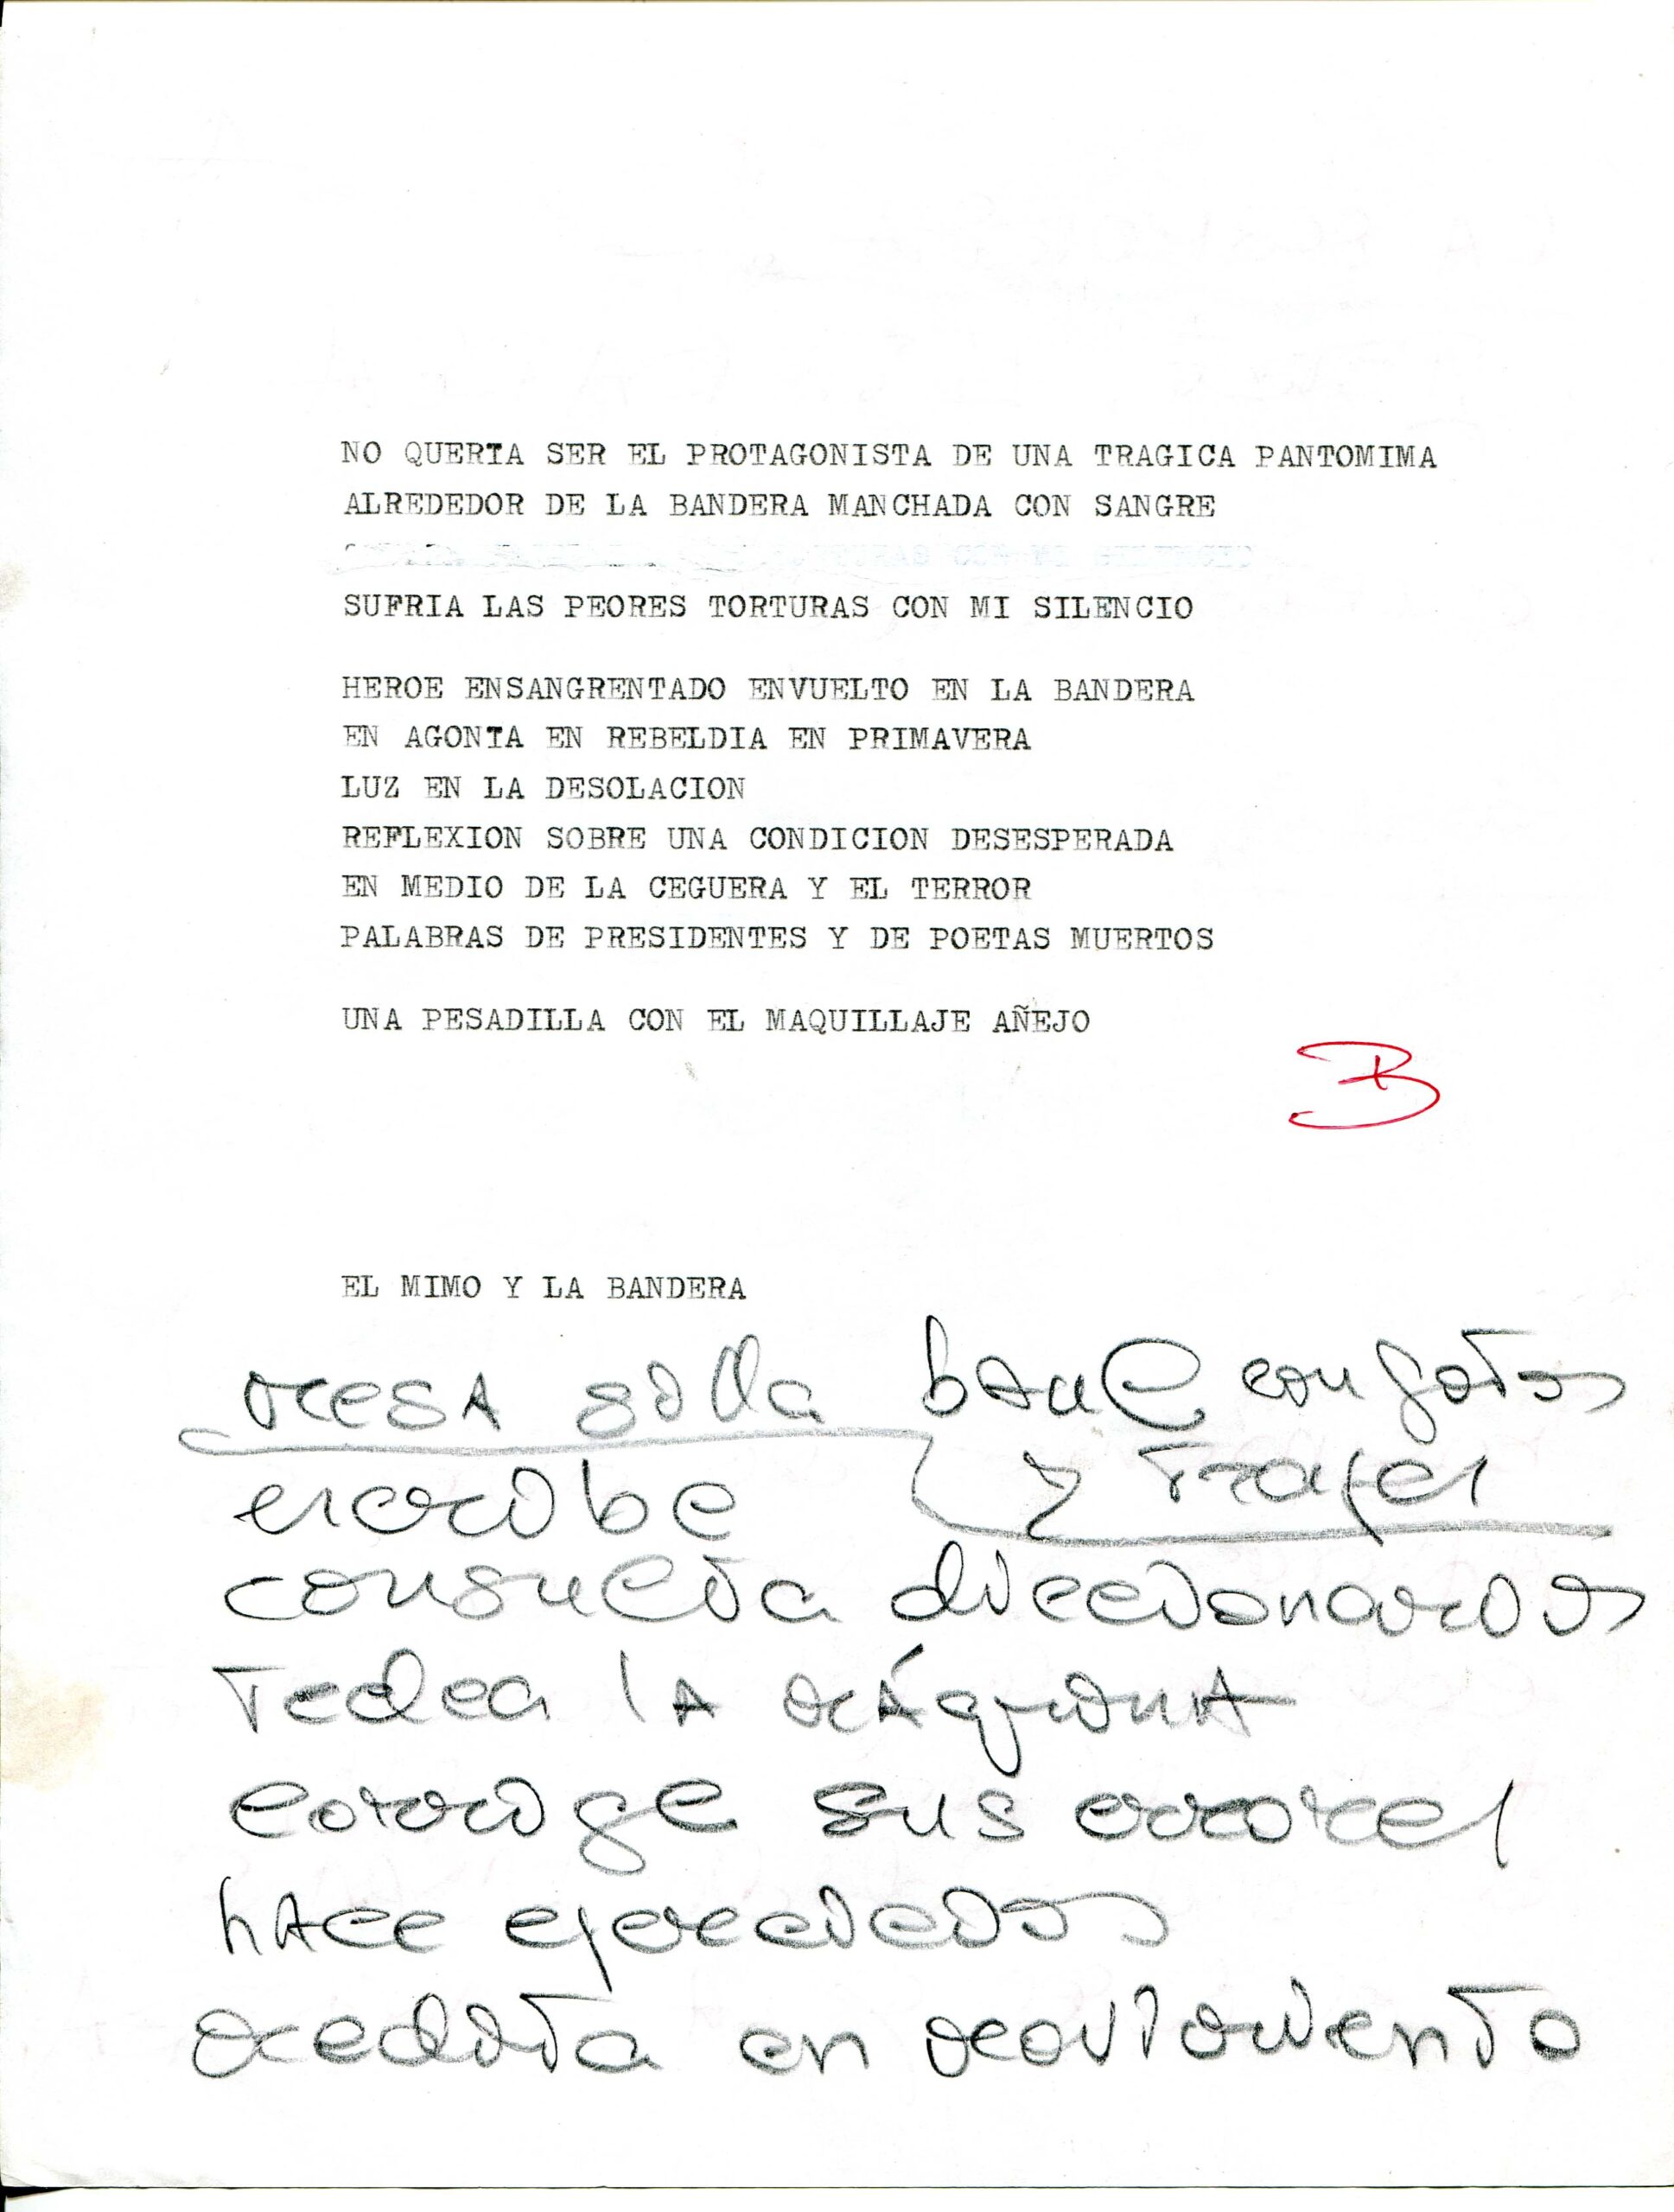 NO QUERIA SER EL PROTAGONISTA DE UNA TRAGICA PANTOMIMA
ALREDEDOR DE LA BANDERA MANCHADA CON SANGRE
SUFRIA LAS PEORES TORTURAS CON MI SILENCIO
HEROE ENSANGRENTADO ENVUELTO EN LA BANDERA
EN AGONIA EN REBELDIA EN PRIMAVERA
LUZ EN LA DESOLACION
REFLEXION SOBRE UNA CONDICION DESESPERADA
EN MEDIO DE LA CEGUERA Y EL TERROR
PALABRAS DE PRESIDENTES Y DE POETAS MUERTOS
UNA PESADILLA CON EL MAQUILLAJE AÑEJO
B
EL MIMO Y LA BANDERA
mesA silla bAul con fotos
y Trajes
escribe
consulta diccionarios
Teclea lA mÁquinA
corrige sus errores
hAce ejercicios
medita en movimiento